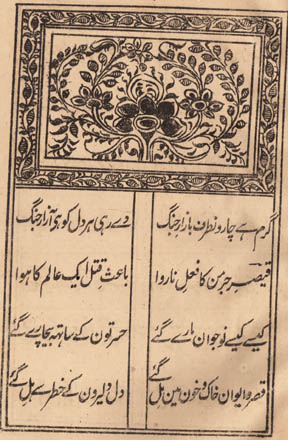 گرم ہے چارونطرف بازار جنگ دے رہی ہر دل کو ہی آزار جنگ
قیصر جرمن کا فعلِ ناروا باعثِ قتل ایک عالم کا ہوا
کیسے کیسے نوجوان مارے گئے حسرتون کے ساتہہ بیچارے گئے
قصر و ایوان خاک و خون مین مل گئے دل دلیرون کے خطرے ہل گئے